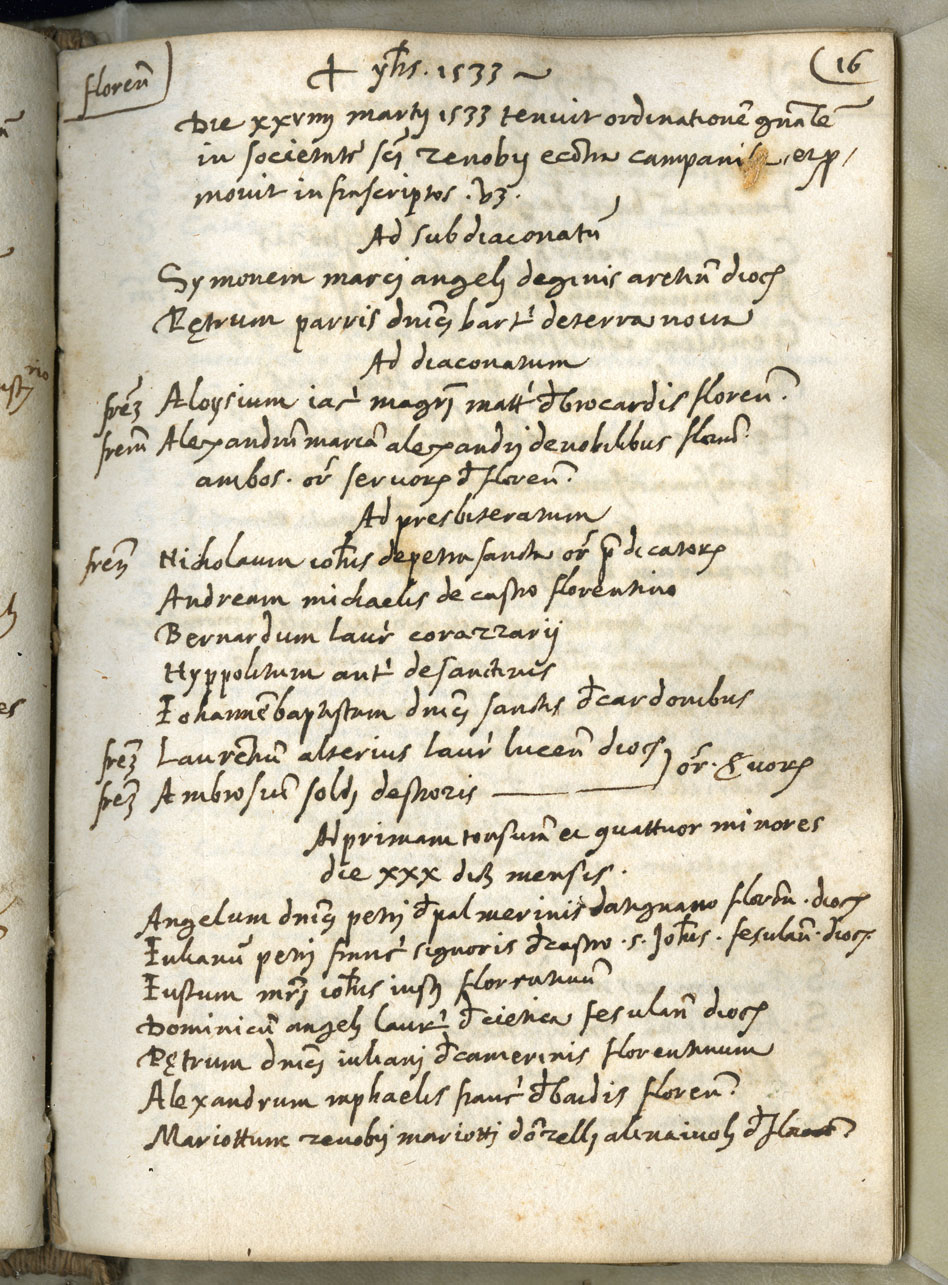 floreñ
✝ yh̄s. 1533 ~
16
Die xxviiij martij 1533 tenuit ordinationē gñalē
in societate sc̄i Zenobij ec̄ctra campanil, et p̱
movit infrascriptos . vz.
Ad subdiaconatū
Symonem marcj angelj deginis aretiñ dioc̄
Pętrum parris dñicj bart̄ deterra noua
Ad diaconatum
frēz Aloysium iac̄ magr̄j matt̄ đbrocardis floreñ.
frem̄ Alexandrum̄ mariā alexandrj denobilibus floreñ.
ambos. or̄ seruorȝ đ floreñ.
Ad presbiteratum
frēz Nicholaum ioh̄is depetra sancta or̄ p̄dicatorȝ
Andream michaelis de castro florentino
Bernardum laur̄ corazzarij
Hyppolitum ant̄ desanctinis
Iohannē baptistam dñicj sanctis đcardonibus
frēz Laurētiū alterius laur̄ luceñ dioc̄
frēz Ambrosiū soldj destroris
or̄. S̄uorȝ
Ad primam tonsurā et quattuor minores
die xxx dc̄j mensis.
Angelum dñicj petrj đpalmerinis datignano floreñ. dioc̄
Iulianū petrj franc̄ signoris đcastro. s. Joh̄is. fesulañ. dioc̄.
Iustum mr̄j ioh̄is iustj florentinum̄
Dominicū angelj laur̄ đcietica fesulañ dioc̄
Pętrum dñicj iulianj đcamerinis florentinum
Alexandrum raphaelis franc̄ đbardis floreñ.
Mariottum zenobij mariottj